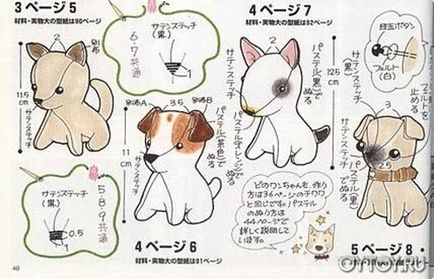 3ページ5
材料・実物大の型紙は90ページ
別布
11.5
cm
サテンステッチ
1
サテンステッチ
(黒)
6・7共通
1
サテンステッチ
(黒)
0.5
1
5・8・9共通
別布A
3.5
別布B
11
cm
サテンステッチ
パステル(茶色)でぬる
4ページ6
材料・実物大の型紙は91ページ
4ページ7
材料・実物大の型紙は92ページ
サテンステッチ
パステル(黒)でぬる
パステル(オレンジ)でぬる
12.5
cm
目玉ボタン
フェルト
(白)
フェルトを止める
サテンステッチ(黒)
パステル(黒)でぬる
サテンステッチ
3
2.5
1
ピのワンちゃんを、作り
方は36ページのチワワ
と同じです。パステル
のぬり方は
44ページで
詳しく説明して
います。
5ページ8
40
OYTOY.RU